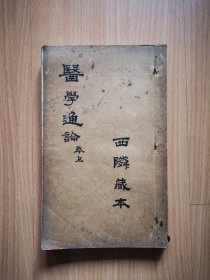 醫學通論 卷上
西隣藏本